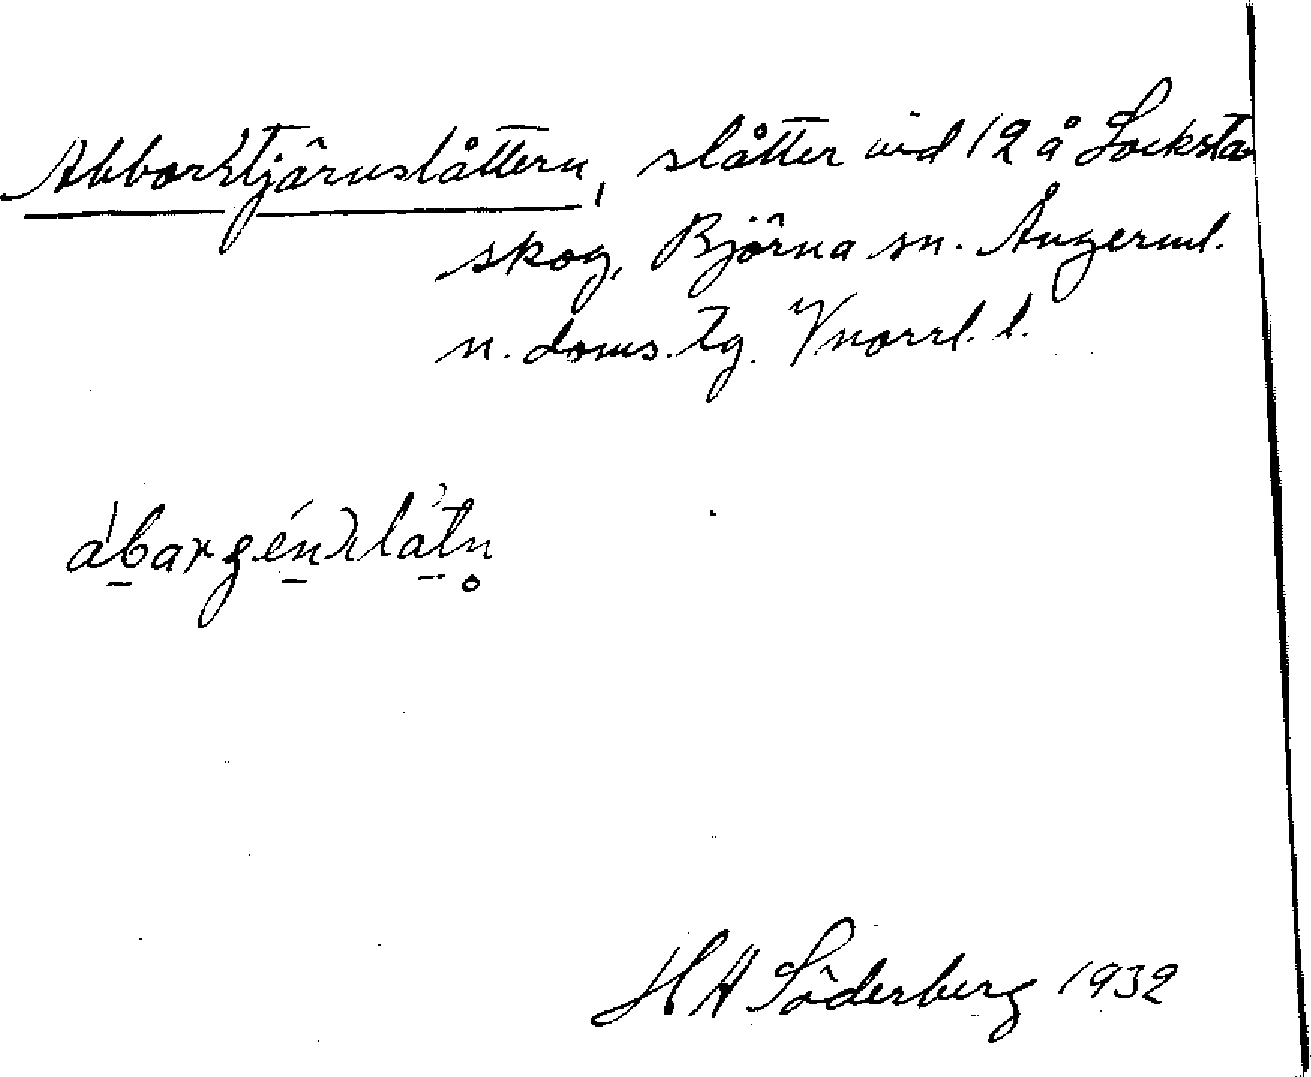 Abborrtjärnslåttern, slåtter vid 12 å Locksta
skog, Björna sn. Ångerml.
n. doms. tg. Vnorrl. l.
H A Söderberg 1932